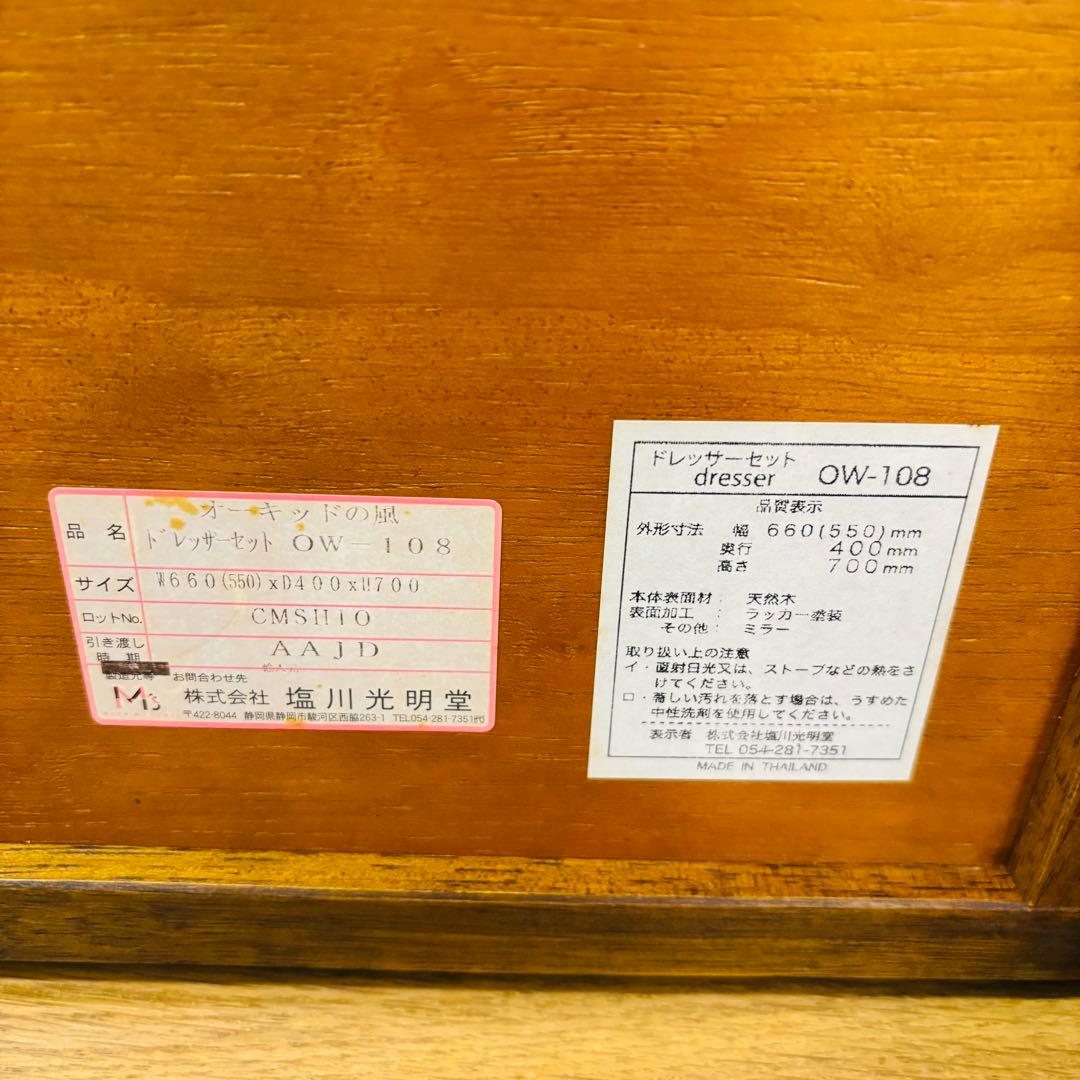 品名
オーキッドの風
ドレッサーセット OW－108
サイズ W660(550)xD400xH700
ロットNo. CMSH10
引き渡し時期 AAJD
製造元等 お問合わせ先
M's 株式会社 塩川光明堂
〒422-8044 静岡県静岡市駿河区西脇263-1 TEL054-281-7351㈹
ドレッサーセット
dresser OW-108
品質表示
外形寸法 幅 660(550)mm
奥行 400mm
高さ 700mm
本体表面材： 天然木
表面加工： ラッカー塗装
その他： ミラー
取り扱い上の注意
イ・直射日光又は、ストーブなどの熱をさ
けてください。
ロ・著しい汚れを落とす場合は、うすめた
中性洗剤を使用してください。
表示者 株式会社塩川光明堂
TEL 054-281-7351
MADE IN THAILAND